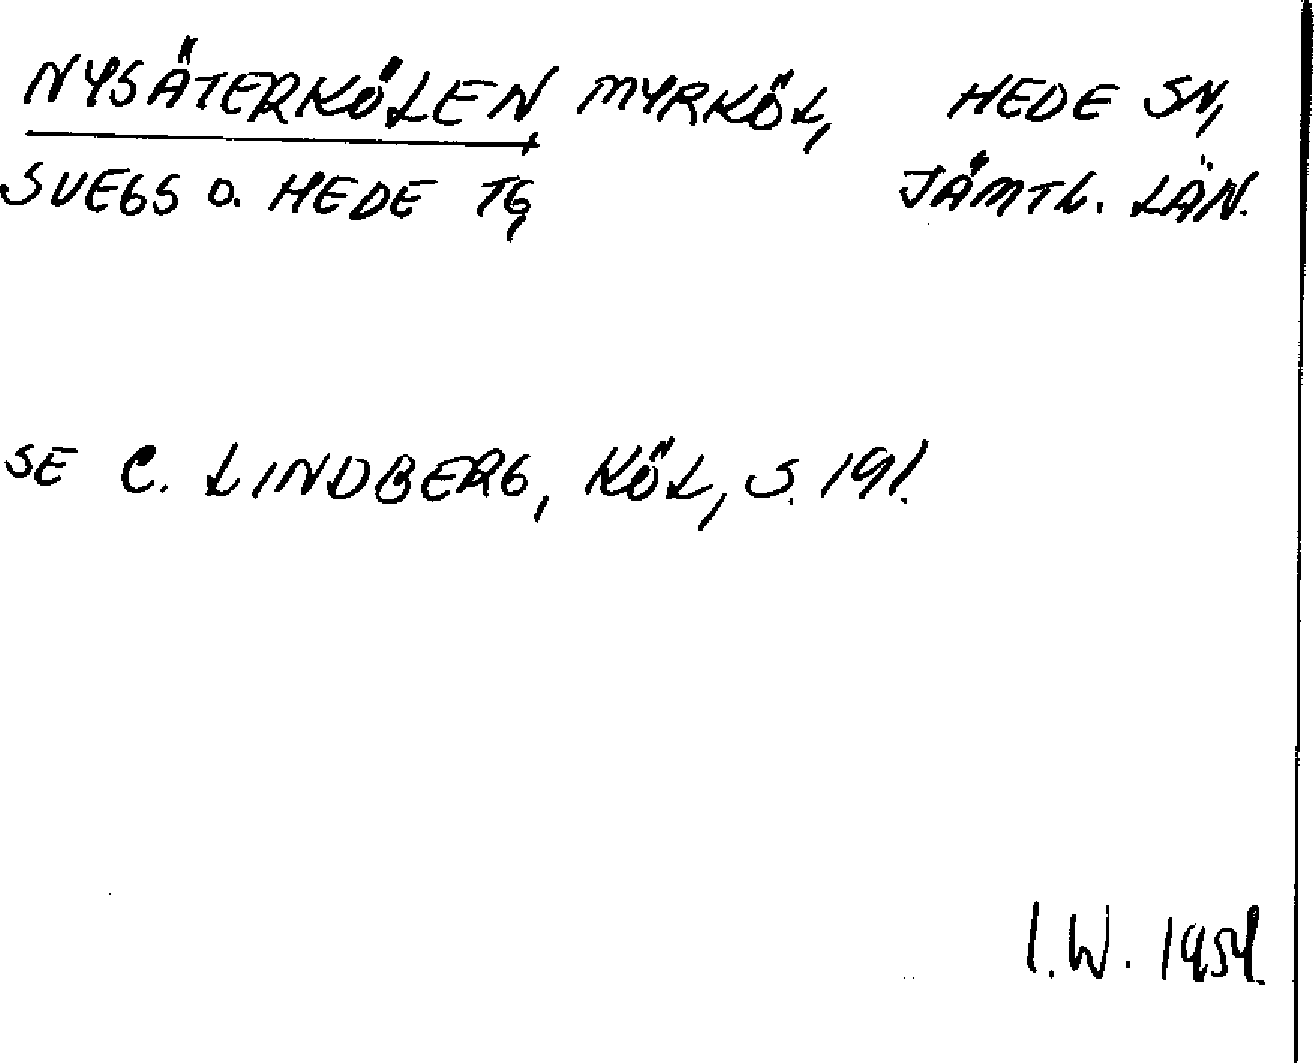 NYSÄTERKÖLEN MYRKÖL, HEDE SN,
SVEGS O. HEDE TG, JÄMTL. LÄN.
SE C. LINDBERG, KÖL, S. 191.
I.W. 1954.